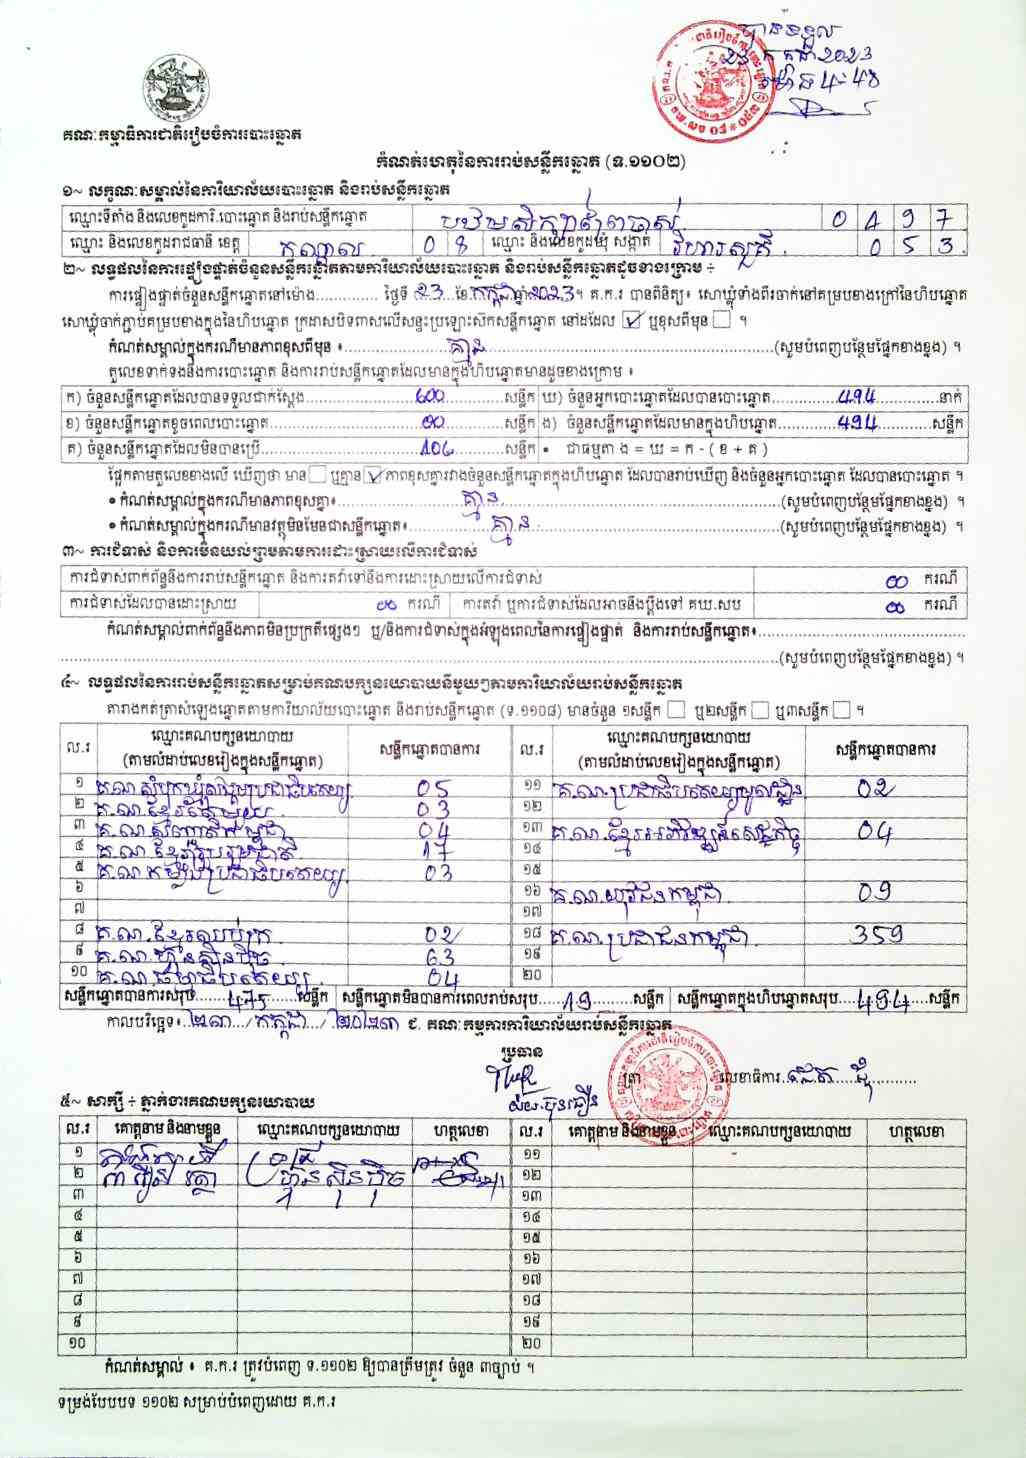 បានទទួល
២៣ កក្កដា 2023
ម៉ោង 4-48
គណៈកម្មាធិការជាតិរៀបចំការបោះឆ្នោត
កំណត់ហេតុនៃការរាប់សន្លឹកឆ្នោត (ទ.១១០២)
១~ លក្ខណៈសម្គាល់នៃការិយាល័យបោះឆ្នោត និងរាប់សន្លឹកឆ្នោត
ឈ្មោះទីតាំង និងលេខកូដការិ.បោះឆ្នោត និងរាប់សន្លឹកឆ្នោត បឋមសិក្សា 0 4 9 7
ឈ្មោះ និងលេខកូដរាជធានី ខេត្ត កណ្ដាល 0 8 ឈ្មោះ និងលេខកូដឃុំ សង្កាត់ វិហារសួគ៌ 0 5 3
២~ លទ្ធផលនៃការផ្ទៀងផ្ទាត់ចំនួនសន្លឹកឆ្នោតតាមការិយាល័យបោះឆ្នោត និងរាប់សន្លឹកឆ្នោតដូចខាងក្រោម ÷
ការផ្ទៀងផ្ទាត់ចំនួនសន្លឹកឆ្នោតនៅម៉ោង............... ថ្ងៃទី 23 ខែ កក្កដា ឆ្នាំ 2023។ គ.ក.រ បានពិនិត្យ៖ សោឃ្លុំទាំងពីរចាក់នៅគម្របខាងក្រៅនៃហិបឆ្នោត
សោឃ្លុំចាក់ភ្ជាប់គម្របខាងក្នុងនៃហិបឆ្នោត ក្រដាសបិទពាសលើសន្ទះប្រឡោះស៊កសន្លឹកឆ្នោត នៅដដែល ☑ ឬខុសពីមុន ☐ ។
កំណត់សម្គាល់ក្នុងករណីមានភាពខុសពីមុន ៖ គ្មាន (សូមបំពេញបន្ថែមផ្នែកខាងខ្នង) ។
តួលេខទាក់ទងនឹងការបោះឆ្នោត និងការរាប់សន្លឹកឆ្នោតដែលមានក្នុងហិបឆ្នោតមានដូចខាងក្រោម ៖
ក) ចំនួនសន្លឹកឆ្នោតដែលបានទទួលជាក់ស្ដែង 600 សន្លឹក ឃ) ចំនួនអ្នកបោះឆ្នោតដែលបានបោះឆ្នោត 494 នាក់
ខ) ចំនួនសន្លឹកឆ្នោតខូចពេលបោះឆ្នោត 00 សន្លឹក ង) ចំនួនសន្លឹកឆ្នោតដែលមានក្នុងហិបឆ្នោត 494 សន្លឹក
គ) ចំនួនសន្លឹកឆ្នោតដែលមិនបានប្រើ 106 សន្លឹក • ជាធម្មតា ង = ឃ = ក - ( ខ + គ )
ផ្អែកតាមតួលេខខាងលើ ឃើញថា មាន ☐ ឬគ្មាន ☑ ភាពខុសគ្នារវាងចំនួនសន្លឹកឆ្នោតក្នុងហិបឆ្នោត ដែលបានរាប់ឃើញ និងចំនួនអ្នកបោះឆ្នោត ដែលបានបោះឆ្នោត ។
• កំណត់សម្គាល់ក្នុងករណីមានភាពខុសគ្នា៖ គ្មាន (សូមបំពេញបន្ថែមផ្នែកខាងខ្នង) ។
• កំណត់សម្គាល់ក្នុងករណីមានវត្ថុមិនមែនជាសន្លឹកឆ្នោត៖ គ្មាន (សូមបំពេញបន្ថែមផ្នែកខាងខ្នង) ។
៣~ ការជំទាស់ និងការមិនយល់ព្រមតាមការដោះស្រាយលើការជំទាស់
ការជំទាស់ពាក់ព័ន្ធនឹងការរាប់សន្លឹកឆ្នោត និងការតវ៉ាទៅនឹងការដោះស្រាយលើការជំទាស់ 00 ករណី
ការជំទាស់ដែលបានដោះស្រាយ 00 ករណី ការតវ៉ា ឬការជំទាស់ដែលអាចនឹងប្ដឹងទៅ គឃ.សប 00 ករណី
កំណត់សម្គាល់ពាក់ព័ន្ធនឹងភាពមិនប្រក្រតីផ្សេងៗ ឬ/និងការជំទាស់ក្នុងអំឡុងពេលនៃការផ្ទៀងផ្ទាត់ និងការរាប់សន្លឹកឆ្នោត៖
(សូមបំពេញបន្ថែមផ្នែកខាងខ្នង) ។
៤~ លទ្ធផលនៃការរាប់សន្លឹកឆ្នោតសម្រាប់គណបក្សនយោបាយនីមួយៗតាមការិយាល័យរាប់សន្លឹកឆ្នោត
តារាងកត់ត្រាសំឡេងឆ្នោតតាមការិយាល័យបោះឆ្នោត និងរាប់សន្លឹកឆ្នោត (ទ.១១០៨) មានចំនួន ១សន្លឹក ☐ ឬ២សន្លឹក ☐ ឬ៣សន្លឹក ☐ ។
ល.រ ឈ្មោះគណបក្សនយោបាយ (តាមលំដាប់លេខរៀងក្នុងសន្លឹកឆ្នោត) សន្លឹកឆ្នោតបានការ ល.រ ឈ្មោះគណបក្សនយោបាយ (តាមលំដាប់លេខរៀងក្នុងសន្លឹកឆ្នោត) សន្លឹកឆ្នោតបានការ
១ គ.ណ.សំបុកឃ្មុំសង្គមប្រជាធិបតេយ្យ 05 ១១ គ.ណ.ប្រជាធិបតេយ្យមូលដ្ឋាន 02
២ គ.ណ.ខ្មែរតែមួយ 03 ១២
៣ គ.ណ.សញ្ជាតិកម្ពុជា 04 ១៣ គ.ណ.ខ្មែរអភិវឌ្ឍន៍សេដ្ឋកិច្ច 04
៤ គ.ណ.ខ្មែររួបរួមជាតិ 17 ១៤
៥ គ.ណ.កម្លាំងប្រជាធិបតេយ្យ 03 ១៥
៦ ១៦ គ.ណ.យុវជនកម្ពុជា 09
៧ ១៧
៨ គ.ណ.ខ្មែរឈប់ក្រ 02 ១៨ គ.ណ.ប្រជាជនកម្ពុជា 359
៩ គ.ណ.ហ៊្វុនស៊ិនប៉ិច 63 ១៩
១០ គ.ណ.ធម្មាធិបតេយ្យ 04 ២០
សន្លឹកឆ្នោតបានការសរុប 475 សន្លឹក សន្លឹកឆ្នោតមិនបានការពេលរាប់សរុប 19 សន្លឹក សន្លឹកឆ្នោតក្នុងហិបឆ្នោតសរុប 494 សន្លឹក
កាលបរិច្ឆេទ៖ ២៣ / កក្កដា / ២០២៣ ជ. គណៈកម្មការការិយាល័យរាប់សន្លឹកឆ្នោត
ប្រធាន
ត្រា លេខាធិការ
៥~ សាក្សី ÷ ភ្នាក់ងារគណបក្សនយោបាយ
ល.រ គោត្តនាម និងនាមខ្លួន ឈ្មោះគណបក្សនយោបាយ ហត្ថលេខា ល.រ គោត្តនាម និងនាមខ្លួន ឈ្មោះគណបក្សនយោបាយ ហត្ថលេខា
១ ១១
២ ហ៊្វុនស៊ិនប៉ិច ១២
៣ ១៣
៤ ១៤
៥ ១៥
៦ ១៦
៧ ១៧
៨ ១៨
៩ ១៩
១០ ២០
កំណត់សម្គាល់ ៖ គ.ក.រ ត្រូវបំពេញ ទ.១១០២ ឱ្យបានត្រឹមត្រូវ ចំនួន ៣ច្បាប់ ។
ទម្រង់បែបបទ ១១០២ សម្រាប់បំពេញដោយ គ.ក.រ